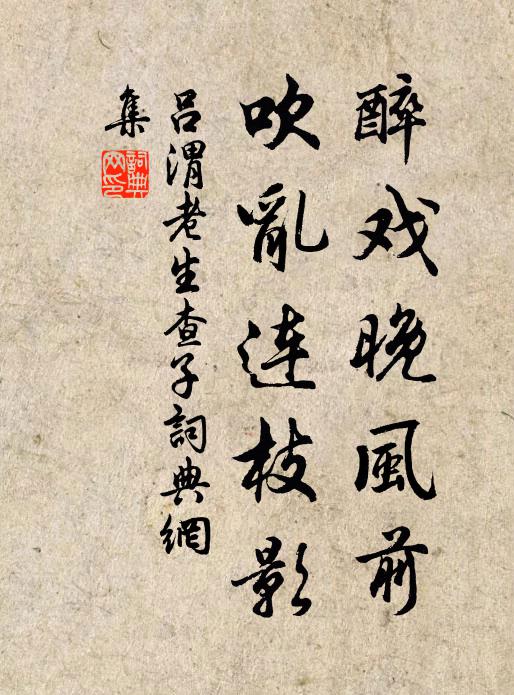 醉戏晚风前
吹亂连枝影
呂渭老生查子詞典網
集
詞典网印